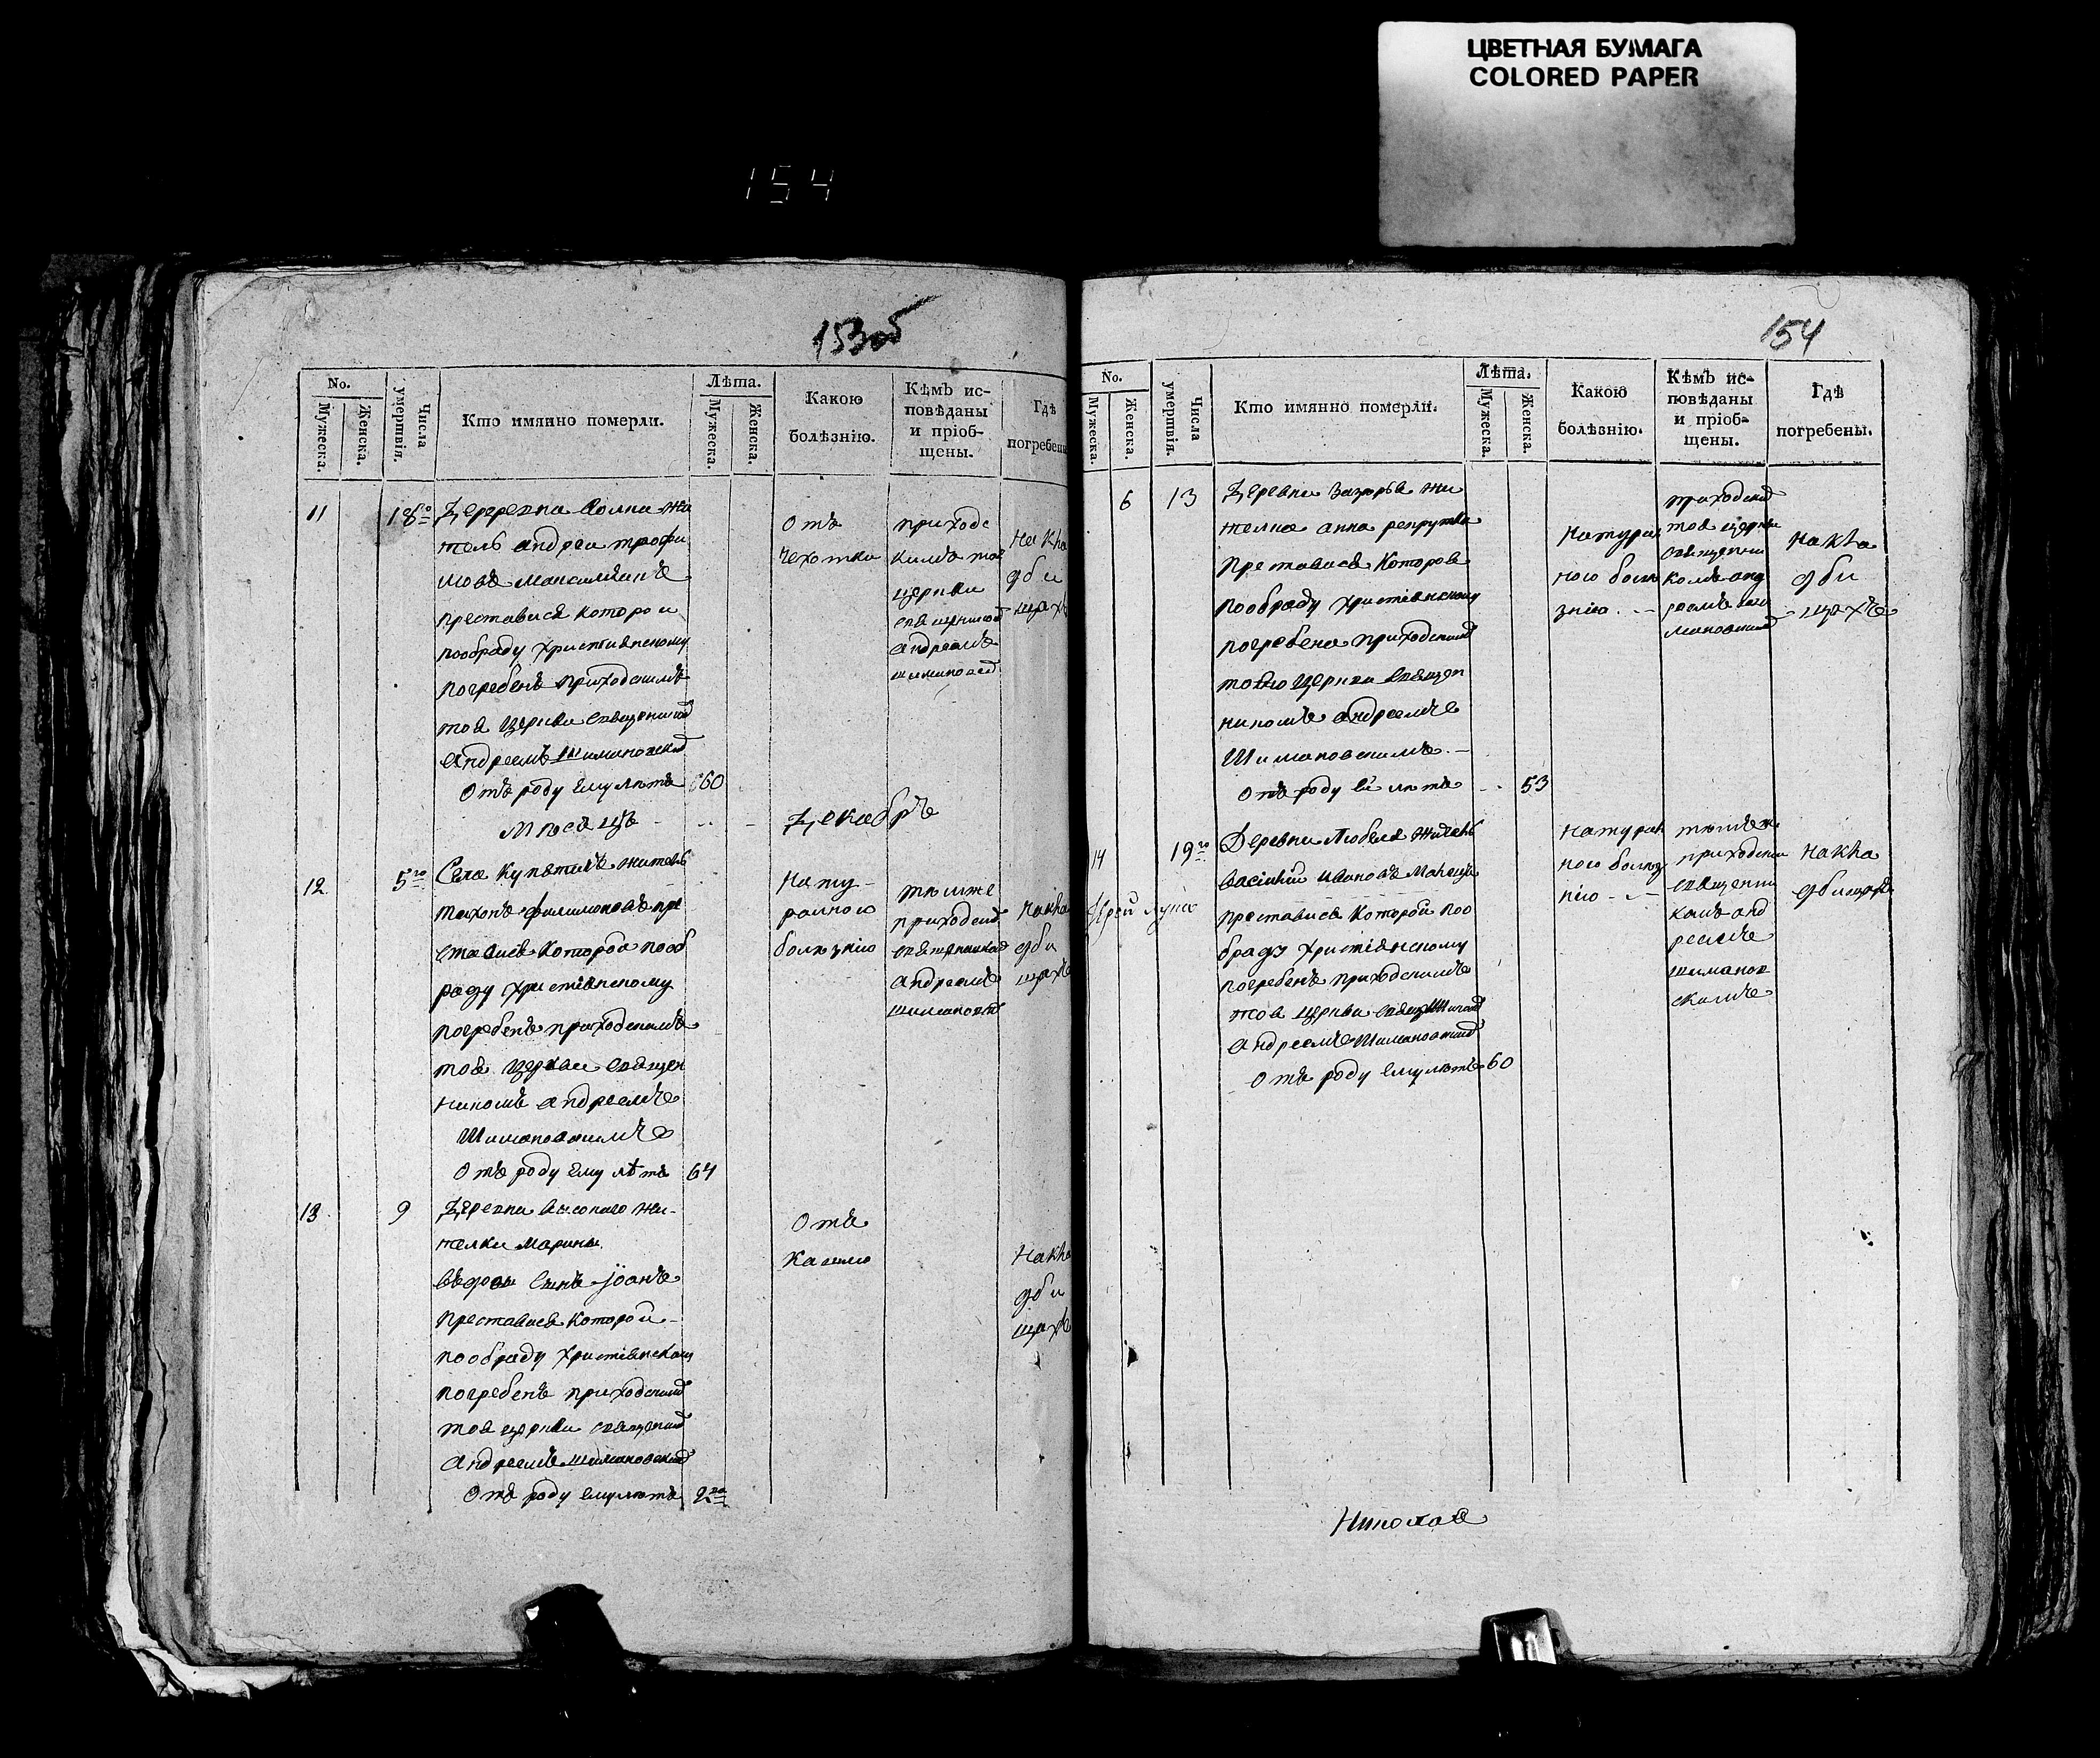 ЦВЕТНАЯ БУМАГА
COLORED PAPER
154
153об
No.
Мужеска.
Женска.
Числа умертвія.
Кто имянно померли.
Лѣта.
Мужеска.
Женска.
Какою
болѣзнію.
Кѣмъ ис-
повѣданы
и пріоб-
щены.
Гдѣ
погребены
11
18го
Деревни жи
тель андреи трофи
мовъ
преставися которои
пообряду христианскому
погребенъ приходскимъ
тоя церкви
андреемъ Шимановским
отъ роду ему лѣтъ 60
отъ
чехотки
приходс
кимъ тоя
церкви
андреемъ
На кла
дби
щахъ
Мѣсяцъ Декабръ
12
5го
Села житель
тихонъ филимоновъ пре
ставися которои пооб
ряду христіянскому
погребенъ приходскимъ
тоя церкви священ
никомъ андреемъ
Шимановскимъ
отъ роду ему лѣтъ 64
нату-
ралною
болѣзнію
тѣмже
приходским
андреемъ
Накла
дби
щахъ
13
9
Деревни жи-
телки Марины
вдовы сынъ іоанъ
преставися которои
пообряду христіянскому
погребенъ приходским
тоя церкви
андреемъ шимановским
отъ роду ему лѣтъ 2
отъ
кашлю
Накла
дби
щахъ
154
No.
Мужеска.
Женска.
Числа умертвія.
Кто имянно померли.
Лѣта.
Мужеска.
Женска.
Какою
болѣзнію.
Кѣмъ ис-
повѣданы
и пріоб-
щены.
Гдѣ
погребены.
6
13
Деревни жи
телка анна
преставися которая
пообряду христіянскому
погребена приходским
тоею церкви священ
никомъ андреемъ
Шимановскимъ.
отъ роду еи лѣтъ 53
натурал
ною болѣ
знію
приходским
тоя церкви
священни
комъ анд
реемъ
Накла
дби
щахъ
14
19го
Деревни Любеля житель
василий ивановъ
преставися которой поо
бряду христіянскому
погребенъ приходскимъ
тоя церкви
андреемъ Шимановским
отъ роду ему лѣтъ 60
натурал
ною болѣз
нію
тѣмже
приходским
священни
комъ анд
реемъ
шиманов
скимъ
Накла
дбищахъ
Николая